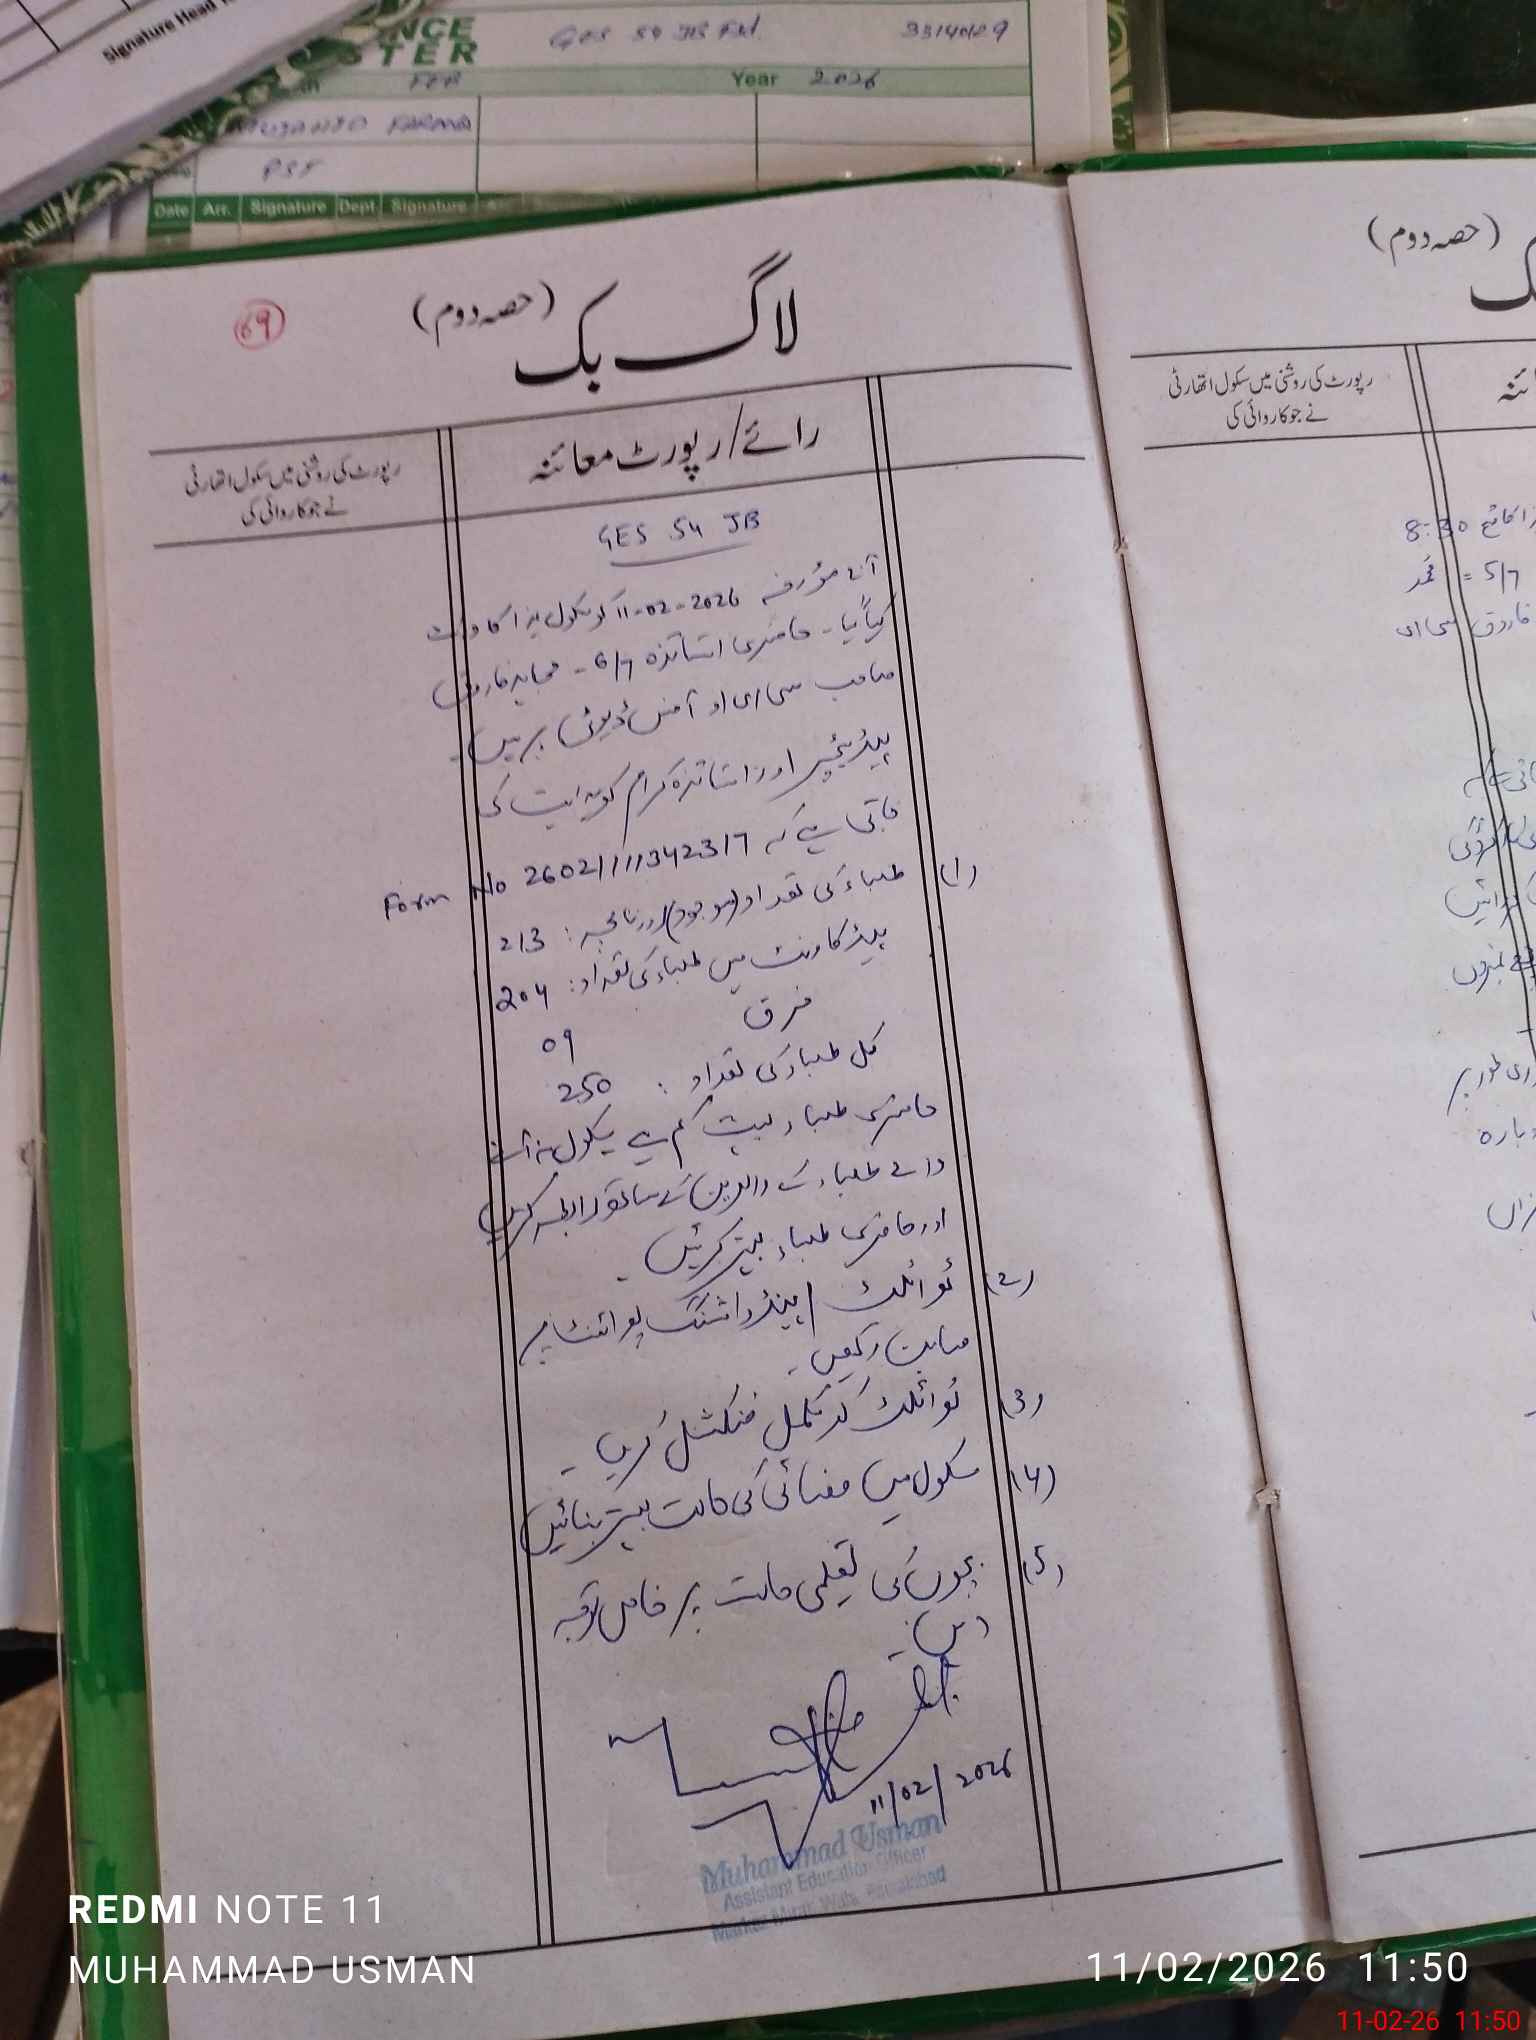 Signature Head
NCE
STER
GES 54 JB Fsd.
33140129
FEB
Year 2026
MUJAHID FAROOQ
PST
Date Arr. Signature Dept Signature
69
لاگ بک (حصہ دوم)
رائے/رپورٹ معائنہ
رپورٹ کی روشنی میں سکول اتھارٹی
نے جو کاروائی کی
GES 54 JB
آج مؤرخہ 11-02-2026 کو سکول ہذا کا وزٹ
کیا گیا۔ حاضری اساتذہ 6/7 - مجاہد فاروق
صاحب سی ای او آفس ڈیوٹی پر ہیں۔
ہیڈ ٹیچر اور اساتذہ کرام کو ہدایت کی
جاتی ہے کہ
Form No 26021111342317
(1) طلباء کی تعداد (موجود) : 213
ہیڈ کاونٹ میں طلباء کی تعداد : 204
فرق 09
کل طلباء کی تعداد : 250
حاضری طلباء بہت کم ہے سکول نہ آنے
والے طلباء کے والدین کے ساتھ رابطہ کریں
اور حاضری طلباء بہتر کریں۔
(2) ٹوائلٹ / ہینڈ واشنگ پوائنٹ پر
صابن رکھیں۔
(3) ٹوائلٹ کو مکمل فنکشنل کریں۔
(4) سکول میں صفائی کی حالت بہتر بنائیں
(5) بچوں کی تعلیمی حالت پر خاص توجہ
دیں۔
11/02/2026
Muhammad Usman
Assistant Education Officer
Faisalabad
(حصہ دوم)
رپورٹ کی روشنی میں سکول اتھارٹی
نے جو کاروائی کی
8:30
5/7 =
فاروق سی ای
طور پر
دوبارہ
REDMI NOTE 11
MUHAMMAD USMAN
11/02/2026 11:50
11-02-26 11:50